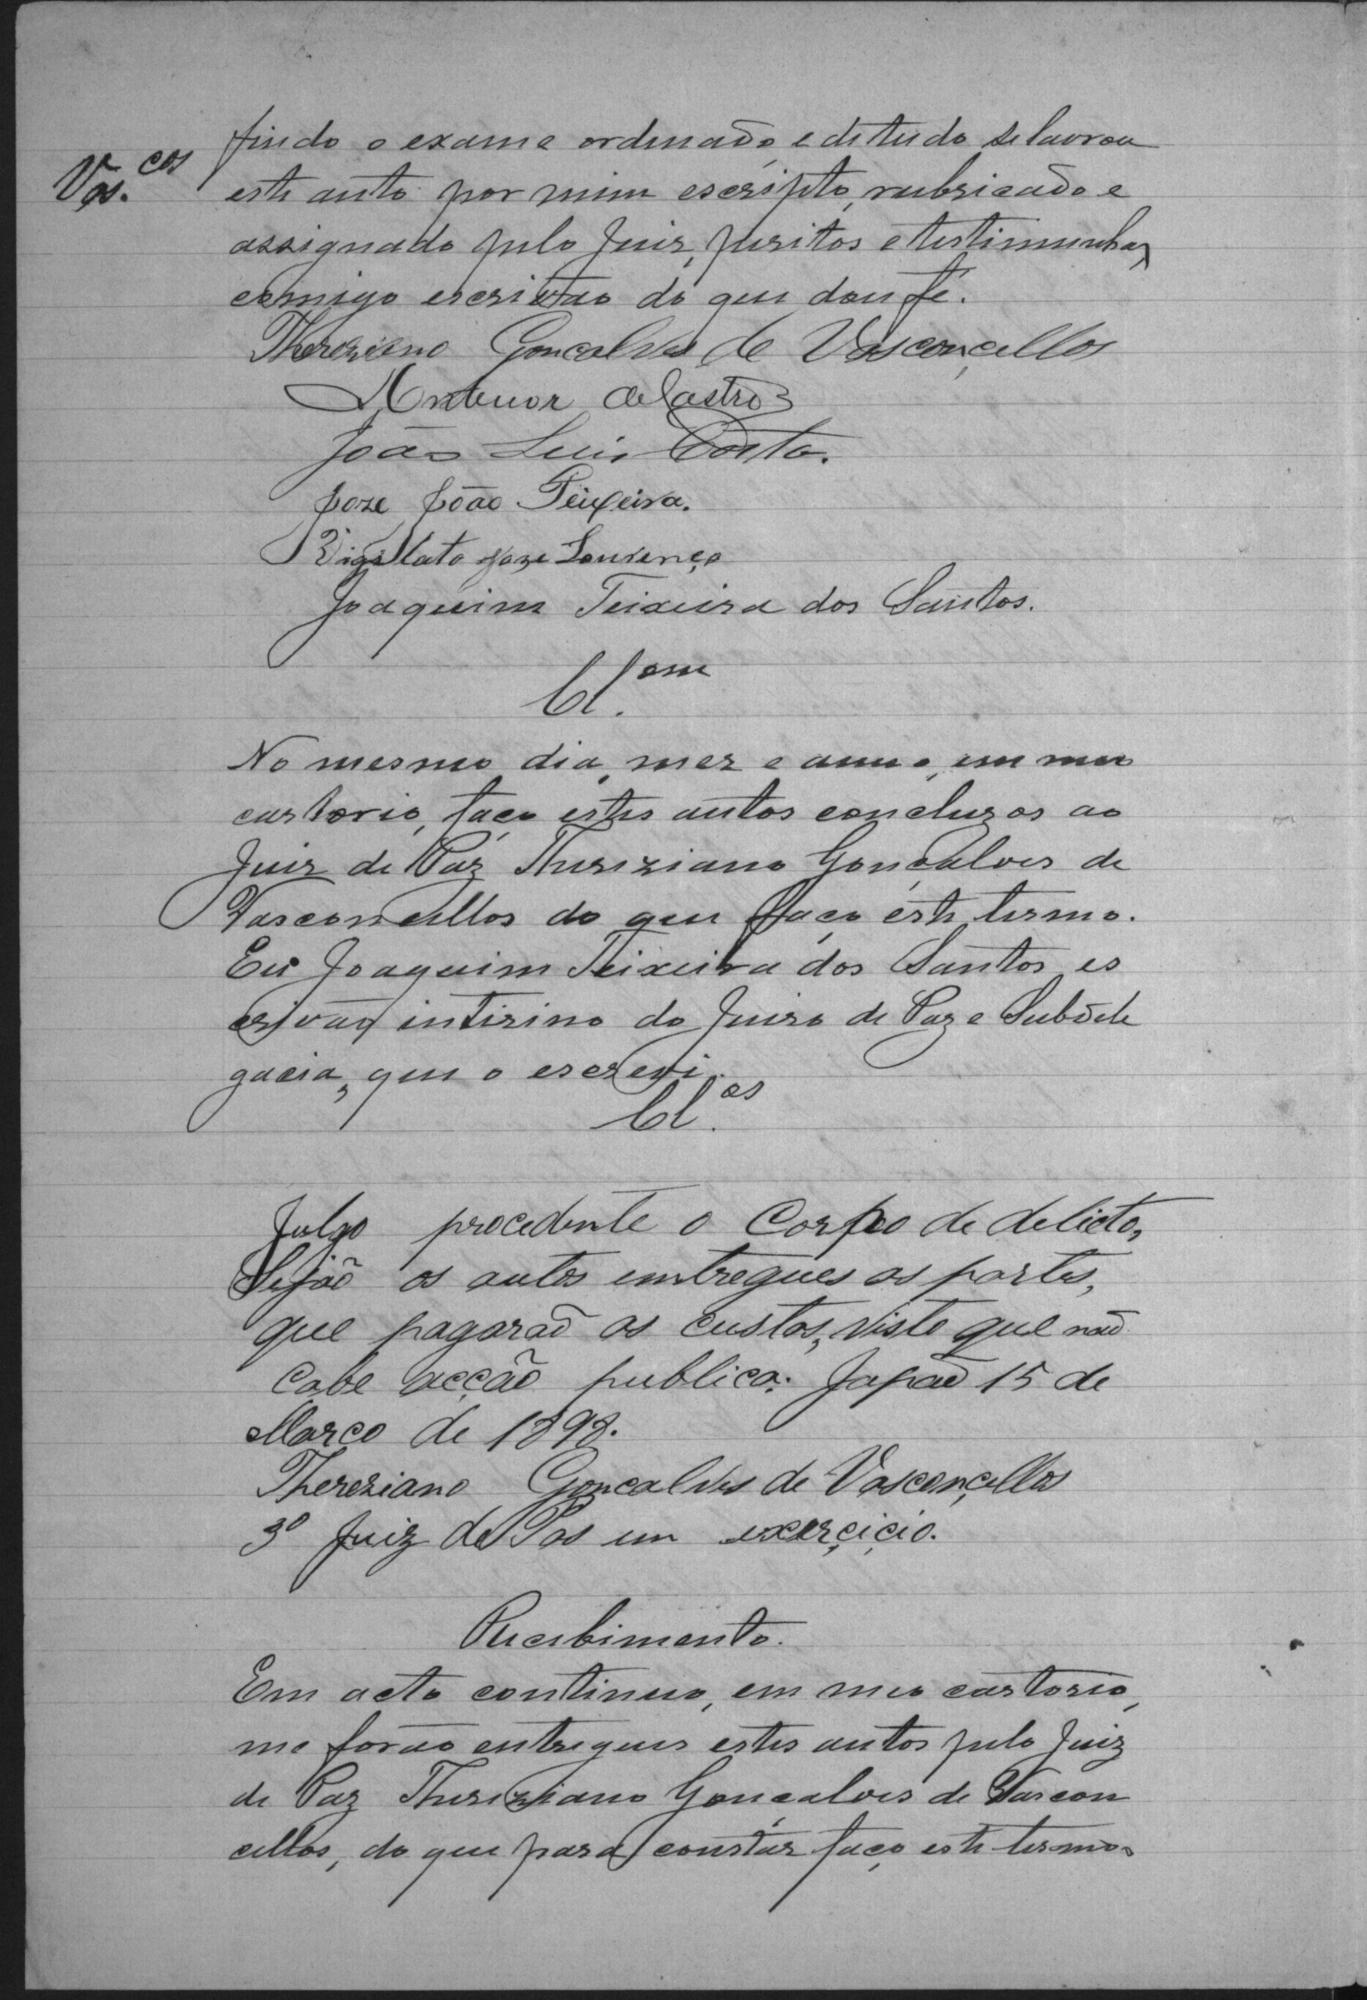 Vas.cos
findo o exame ordenado, e de tudo se lavrou
este auto por mim escripto, rubricado e
assignado pelo Juiz, peritos e testimunhas,
comigo escrivão do que dou fé.
Thereziano Goncalves de Vasconçellos
Antenor de Castro
João Luis Costa.
Joze João Teixeira.
Vigilato Joze Lourenço
Joaquim Teixeira dos Santos.
Cl.om
No mesmo dia, mez e anno, em meu
cartorio, faço estes autos concluzos ao
Juiz de Paz Thereziano Gonçalves de
Vasconcellos do que faço este termo.
Eu Joaquim Teixeira dos Santos, es
crivão intirino do Juizo de Paz e Subdele
gacia, que o escrevi.
Cl.os
Julgo procedente o Corpo de delicto,
Sejão os autos emtregues as partes,
que pagarão as custas, visto que não
Cabe acção publica. Japão 15 de
Março de 1898.
Thereziano Gonçalves de Vasconçellos
3º Juiz de Pas em exerçiçio.
Recebimento.
Em acto continuo, em meu cartorio,
me forão entregues estes autos pelo Juiz
de Paz Thereziano Gonçalves de Vascon
cellos, do que para constar faço este termo.